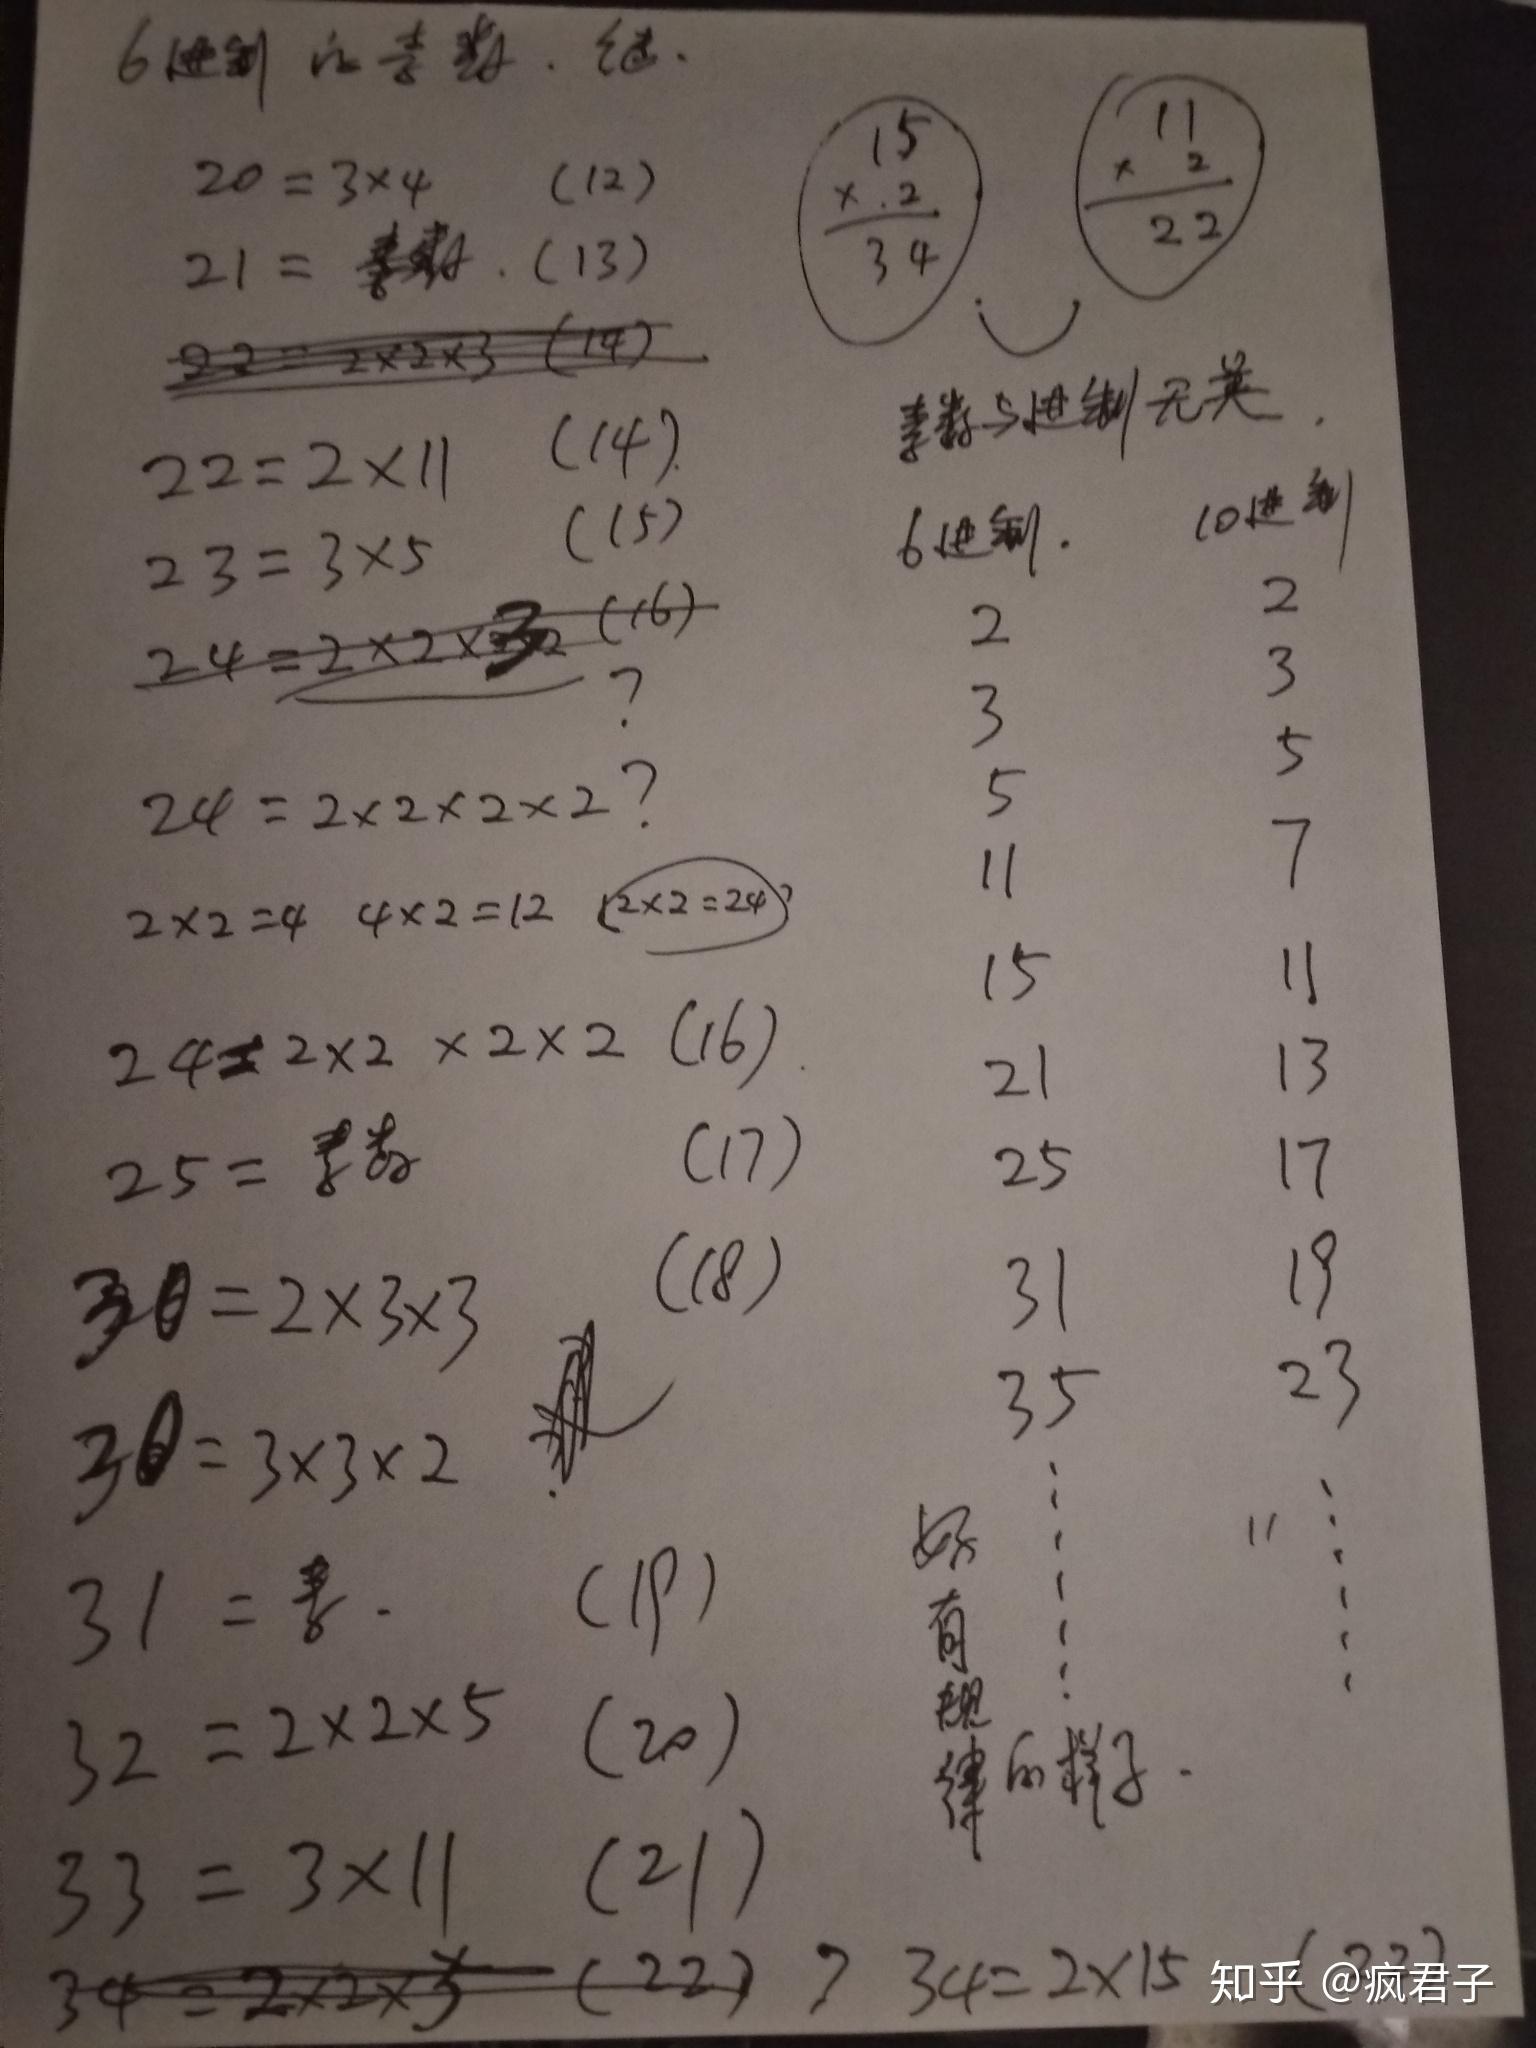 6进制的素数.续.
20 = 3×4 (12)
21 = 素数.(13)
22 = 2×2×3 (14)
22 = 2×11 (14).
23 = 3×5 (15)
24 = 2×2× (16)
?
24 = 2×2×2×2?
2×2=4 4×2=12 12×2=24?
24=2×2 ×2×2 (16).
25 = 素数 (17)
30 = 2×3×3 (18)
30 = 3×3×2
31 = 素. (19)
32 = 2×2×5 (20)
33 = 3×11 (21)
34 = 2×2×3 (22) ? 34=2×15 (22)
15
× .2
34
11
× 2
22
素数与进制无关.
6进制. 10进制
2 2
3 3
5 5
11 7
15 11
21 13
25 17
31 19
35 23
好有规律的样子.
"
知乎 @疯君子